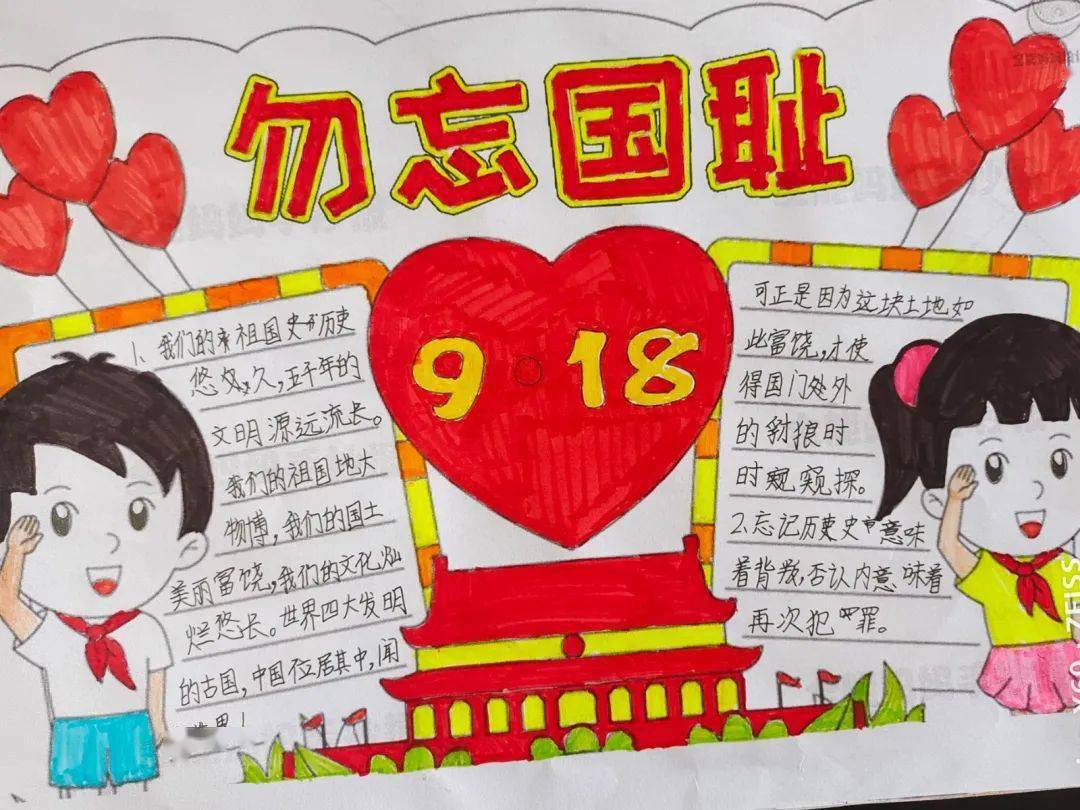 勿忘国耻
9·18
1、我们的祖国历史
悠久,五千年的
文明源远流长。
我们的祖国地大
物博,我们的国土
美丽富饶,我们的文化灿
烂悠长。世界四大发明
的古国,中国位居其中,闻
可正是因为这块土地如
此富饶,才使
得国门处外
的豺狼时
时窥窥探。
2.忘记历史意味
着背叛,否认内意味着
再次犯罪。
ZEISS